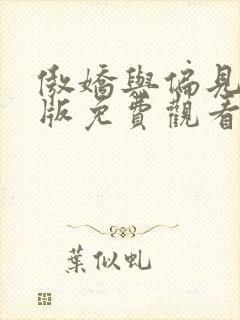 傲嬌與偏見
版免費觀看
葉似虬